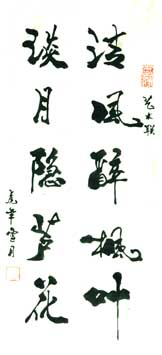 清风醉枫叶
淡月隐芦花
虎年雪月